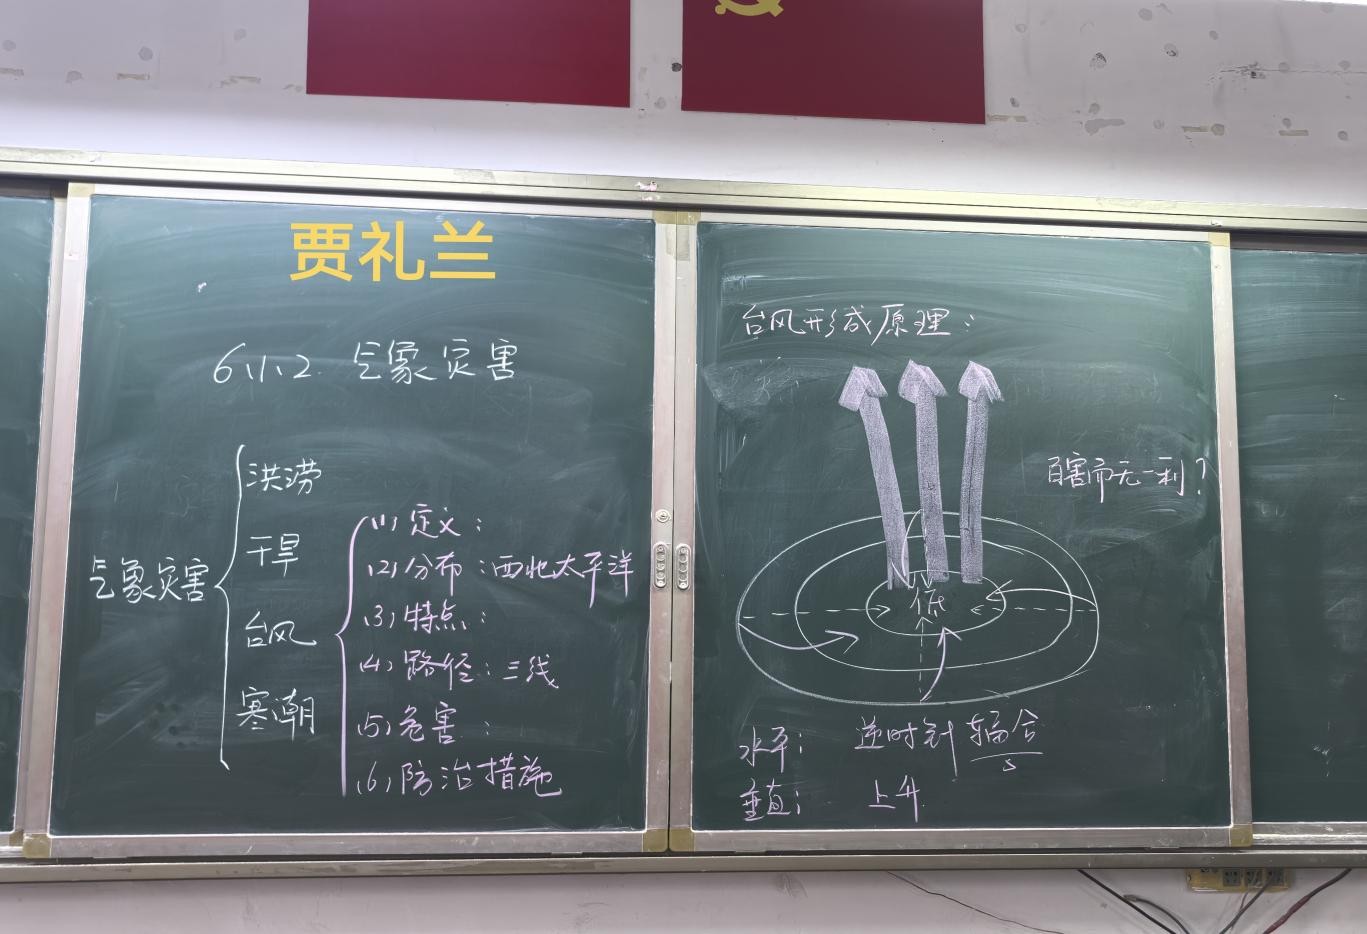 贾礼兰
6.1.2. 气象灾害
气象灾害
洪涝
干旱
台风
寒潮
(1) 定义：
(2) 分布：西北太平洋
(3) 特点：
(4) 路径：三线
(5) 危害：
(6) 防治措施
台风形成原理：
百害而无一利？
低
水平： 逆时针辐合
垂直： 上升